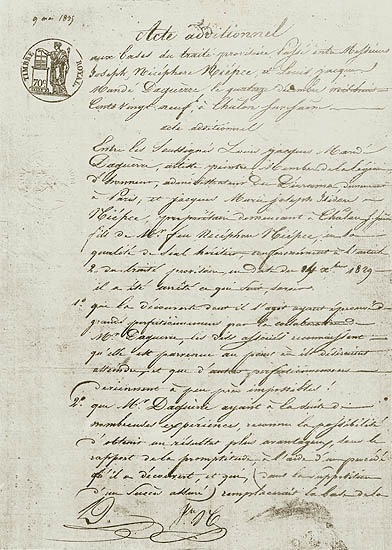 9 mai 1835
TIMBRE ROYAL
70
Acte additionnel
aux bases du traité provisoire passé entre Messieurs
Joseph Nicéphore Niépce et Louis Jacques
Mandé Daguerre, le quatorze décembre mil huit
Cent vingt neuf, à Châlon sur Saône
acte additionnel
Entre les Soussignés Louis Jacques Mandé
Daguerre, artiste peintre, Membre de la Légion
d'honneur, administrateur du Diorama demeurant
à Paris, et Jacques Marie Joseph Isidore
Niépce, propriétaire demeurant à Chalon
fils de Mr. feu Nicéphore Niépce, en sa
qualité de seul héritier conformément à l'article
2. du traité provisoire en date du 14 Xbre 1829
il a été arrêté ce qui suit, savoir
1° que la découverte dont il s'agit ayant éprouvé
grands perfectionnemens par la collaboration de
Mr Daguerre, les dits associés reconnaissent
qu'elle est parvenue au point où ils désiraient
atteindre, et que d'autres perfectionnemens
deviennent à peu près impossibles.
2° que Mr. Daguerre ayant à la suite de
nombreuses expériences, reconnu la possibilité
d'obtenir un résultat plus avantageux, sous le
rapport de la promptitude, à l'aide d'un procédé
qu'il a découvert, et que, (dans la supposition
d'un succès assuré) remplacerait la base de la
D. N